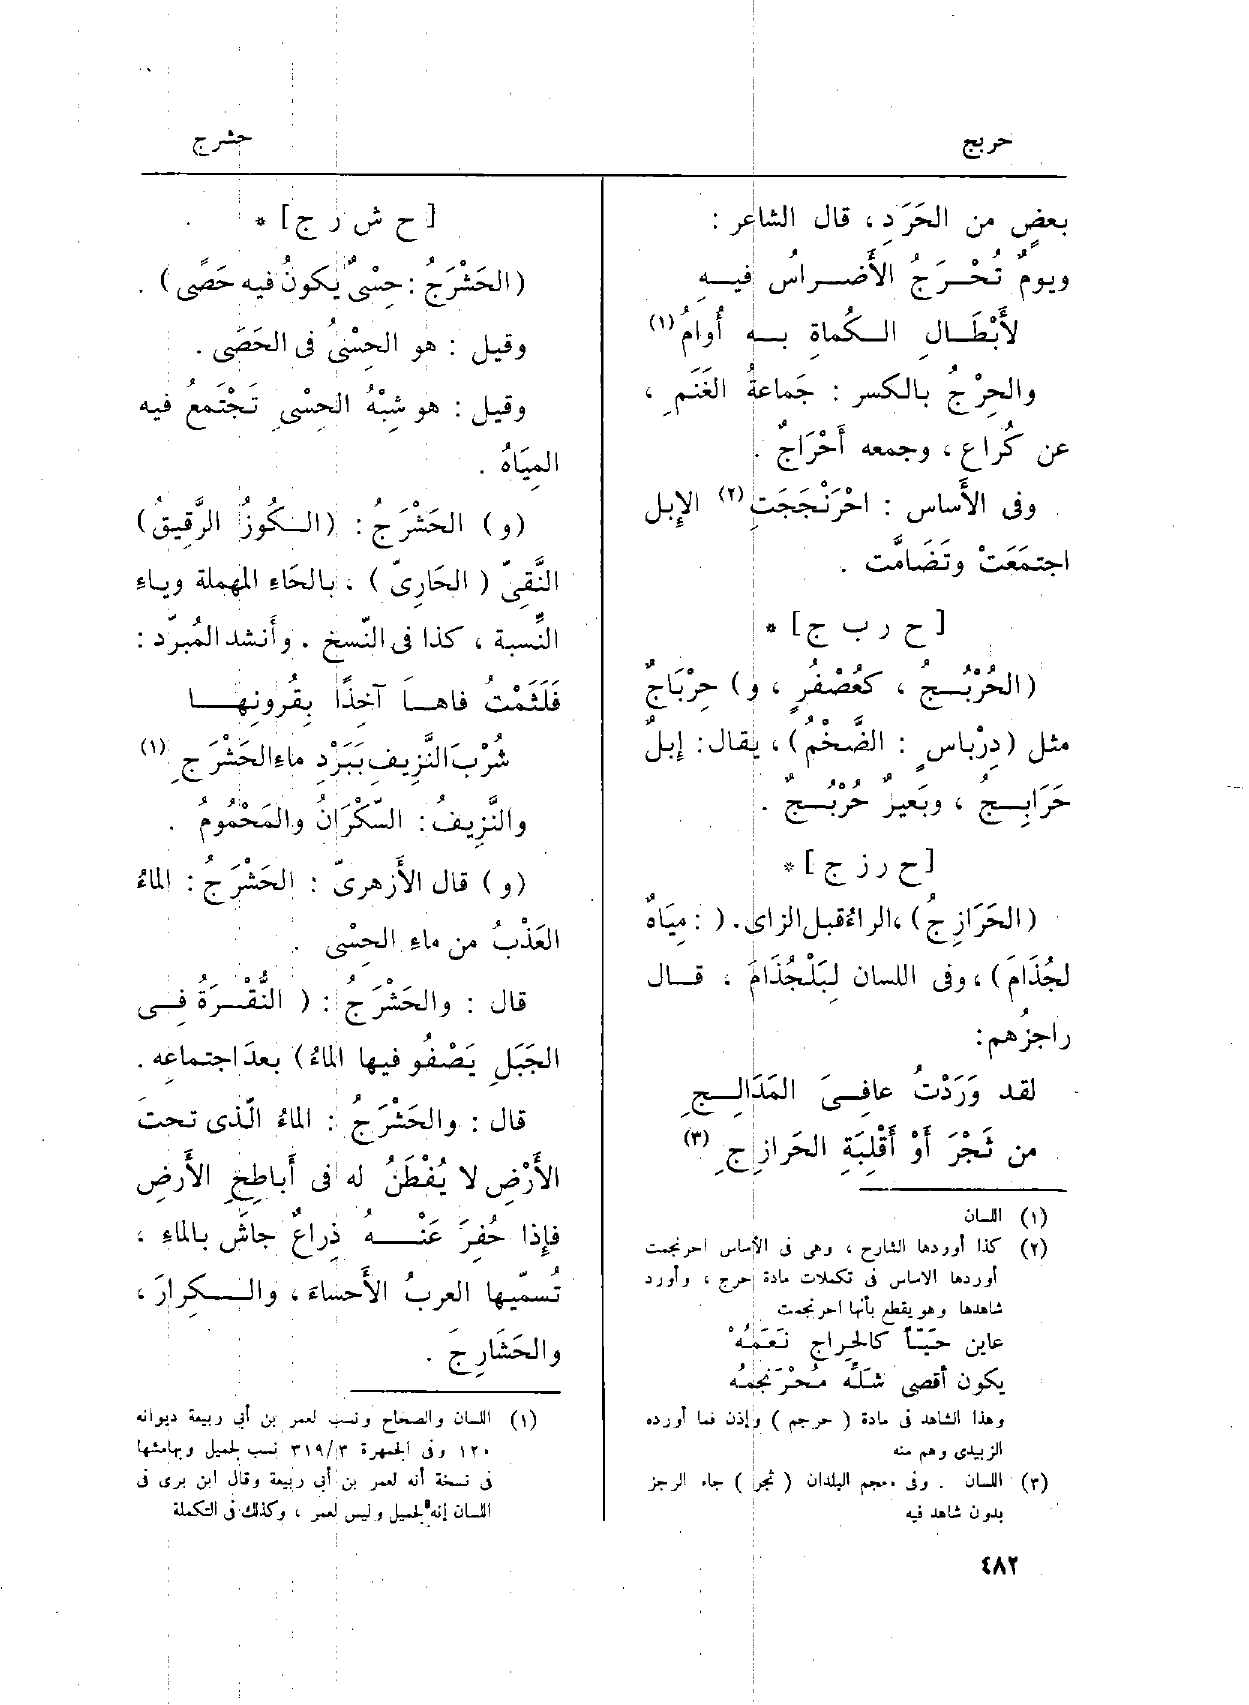 حربج
حشرج
بعضٍ من الحَرَدِ، قال الشاعر :
ويومٌ تُحْرَجُ الأَضراسُ فيهِ
لأَبْطَالِ الكُماةِ به أُوامُ (١)
والحِرْجُ بالكسر : جَماعةُ الغَنَمِ ،
عن كُراع ، وجمعه أَحْرَاجٌ .
وفى الأَساس : احْرَنْجَجَتِ (٢) الإِبل
اجتمَعَتْ وتَضَامَّت .
[ح ر ب ج] *
(الحُرْبُجُ ، كعُصْفُرٍ ، و) حِرْبَاجٌ
مثل (دِرْباسٍ : الضَّخْمُ) ، يقال: إِبلٌ
حَرَابِجُ ، وبَعيرٌ حُرْبُجٌ .
[ح ر ز ج] *
(الحَرَازِجُ) ،الراءُ قبل الزاى. ( : مِيَاهٌ
لجُذَامَ) ، وفى اللسان لِبَلْجُذَامَ ، قال
راجزُهم:
لقد وَرَدْتُ عافِىَ المَدَالِجِ
من ثَجْرَ أَوْ أَقْلِبَةِ الحَرازِجِ (٣)
(١) اللسان
(٢) كذا أوردها الشارح ، وهى فى الأساس احرنجمت
أوردها الاساس فى تكملات مادة حرج ، وأورد
شاهدها وهو يقطع بأنها احرنجمت
عاين حَيّاً كالحِراج نَعَمُهْ
يكون أقصى شَلِّه مُحْرَنجمُه
وهذا الشاهد فى مادة ( حرجم ) وإذن فما أورده
الزبيدى وهم منه
(٣) اللسان . وفى معجم البلدان ( ثجر ) جاء الرجز
بدون شاهد فيه
[ح ش ر ج] *
(الحَشْرَجُ : حِسْىٌ يكونُ فيه حَصًى) .
وقيل : هو الحِسْىُ فى الحَصَى .
وقيل : هو شِبْهُ الحِسْىِ تَجْتَمعُ فيه
المِيَاهُ .
(و) الحَشْرَجُ : (الكُوزُ الرَّقيقُ)
النَّقِىّ ( الحَارِىّ ) . بالحَاءِ المهملة وياءِ
النِّسبة ، كذا فى النّسخ . وأَنشد المُبرّد :
فَلَثَمْتُ فاها آخِذًا بِقُرونِها
شُرْبَ النَّزِيفِ بِبَرْدِ ماءِ الحَشْرَجِ (١)
والنَّزِيفُ : السّكْرَانُ والمَحْمُومُ .
(و) قال الأَزهرىّ : الحَشْرَجُ : الماءُ
العَذْبُ من ماءِ الحِسْى .
قال : والحَشْرَجُ : ( النُّقْرَةُ فِى
الجَبَلِ يَصْفُو فيها الماءُ) بعدَ اجتماعِه .
قال : والحَشْرَجُ : الماءُ الّذى تحتَ
الأَرْضِ لا يُفْطَنُ له فى أَباطِحِ الأَرضِ
فإِذا حُفِرَ عَنْهُ ذِراعٌ جاشَ بالماءِ ،
تُسمّيها العربُ الأَحساءَ ، والكِرارَ ،
والحَشَارِجَ .
(١) اللسان والصحاح ونسب لعمر بن أبى ربيعة ديوانه
١٢٠ وفى الجمهرة ٣/٣١٩ نسب لجميل وبهامشها
فى نسخة أنه لعمر بن أبى ربيعة وقال ابن برى فى
اللسان إنه لجميل وليس لعمر ، وكذلك فى التكملة
٤٨٢